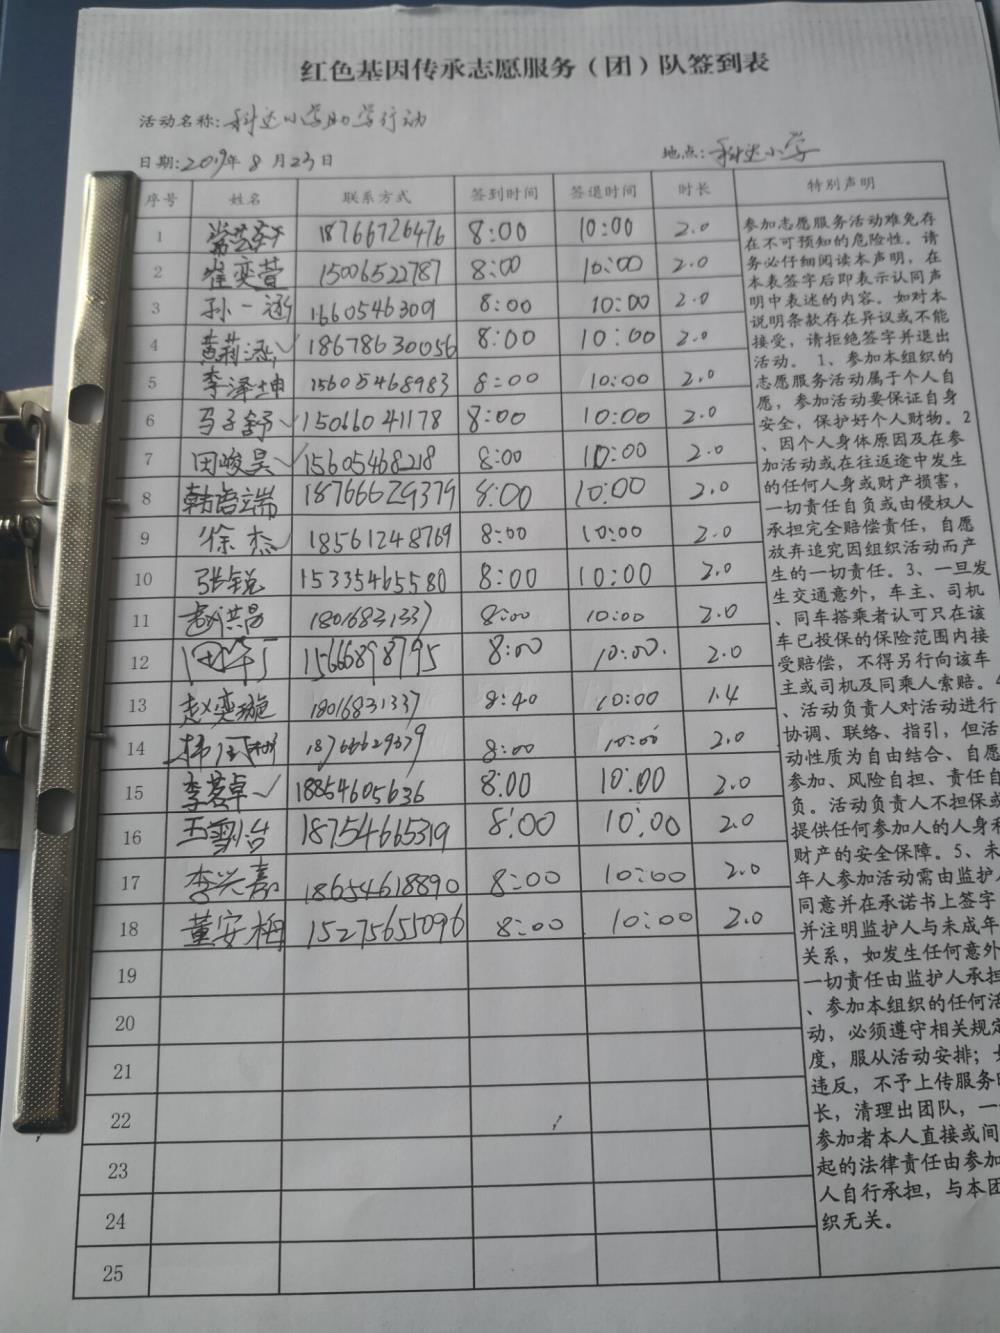 红色基因传承志愿服务（团）队签到表
活动名称：科达小学助学行动
日期：2019年8月23日 地点：科达小学
序号 姓名 联系方式 签到时间 签退时间 时长 特别声明
1 18766726476 8:00 10:00 2.0
2 崔奕萱 15006522787 8:00 10:00 2.0
3 孙一涵 16605463009 8:00 10:00 2.0
4 黄莉涵✓ 18678630056 8:00 10:00 2.0
5 李泽坤 15605468983 8:00 10:00 2.0
6 马子舒✓ 15066041178 8:00 10:00 2.0
7 田峻昊✓ 15605468218 8:00 10:00 2.0
8 韩语端 18766629379 8:00 10:00 2.0
9 徐杰✓ 18561248769 8:00 10:00 2.0
10 张锐 15335465580 8:00 10:00 2.0
11 赵洪昌 18016831337 8:00 10:00 2.0
12 15666898795 8:00 10:00. 2.0
13 赵奕璇 18016831337 8:40 10:00 1.4
14 18766629379 8:00 10:00 2.0
15 李茗卓✓ 18854605636 8:00 10:00 2.0
16 王雪怡 18754665319 8:00 10:00 2.0
17 李兴嘉 18654618890 8:00 10:00 2.0
18 董安梅 15275655096 8:00 10:00 2.0
19
20
21
22
23
24
25
参加志愿服务活动难免存
在不可预知的危险性。请
务必仔细阅读本声明，在
本表签字后即表示认同声
明中表述的内容。如对本
说明条款存在异议或不能
接受，请拒绝签字并退出
活动。1、参加本组织的
志愿服务活动属于个人自
愿，参加活动要保证自身
安全，保护好个人财物。2
、因个人身体原因及在参
加活动或在往返途中发生
的任何人身或财产损害，
一切责任自负或由侵权人
承担完全赔偿责任，自愿
放弃追究因组织活动而产
生的一切责任。3、一旦发
生交通意外，车主、司机
、同车搭乘者认可只在该
车已投保的保险范围内接
受赔偿，不得另行向该车
主或司机及同乘人索赔。4
、活动负责人对活动进行
协调、联络、指引，但活
动性质为自由结合、自愿
参加、风险自担、责任自
负。活动负责人不担保或
提供任何参加人的人身和
财产的安全保障。5、未
年人参加活动需由监护人
同意并在承诺书上签字
并注明监护人与未成年
关系，如发生任何意外
一切责任由监护人承担
、参加本组织的任何活
动，必须遵守相关规定
度，服从活动安排；如
违反，不予上传服务时
长，清理出团队，一
参加者本人直接或间
起的法律责任由参加
人自行承担，与本团
织无关。